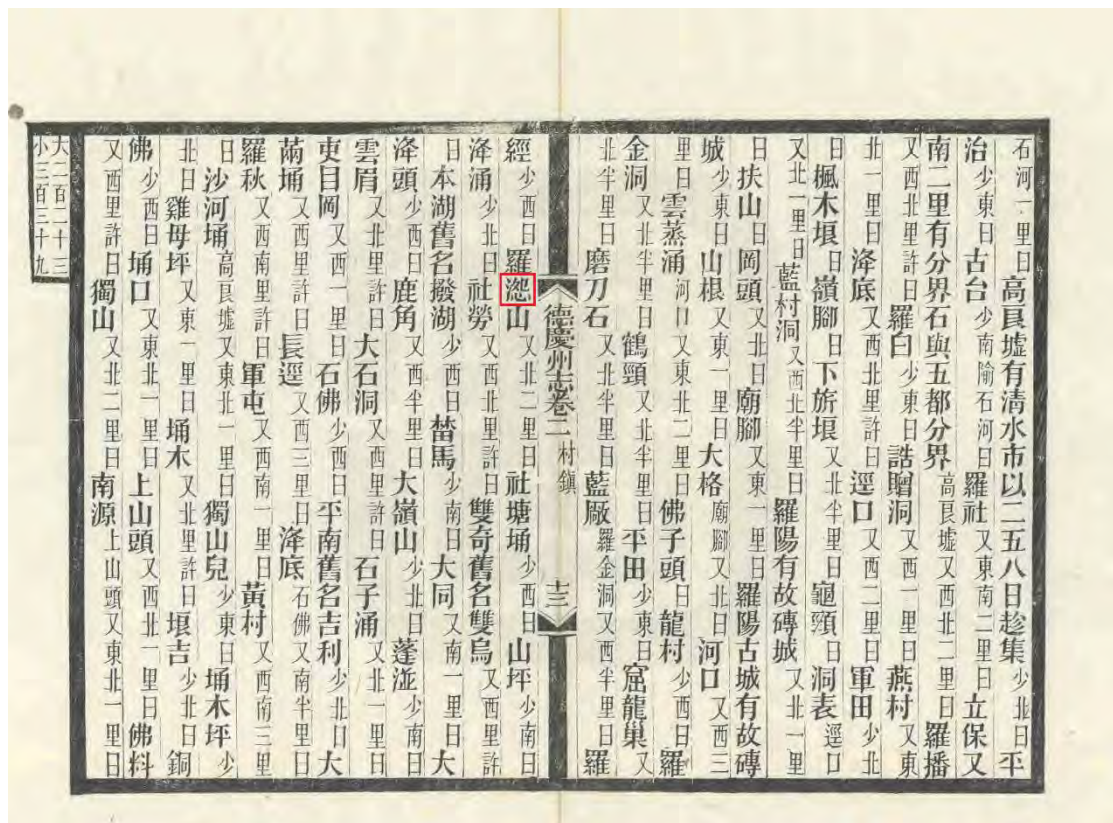 石河一里曰高良墟有清水市以二五八日趁集少北曰平
治少東曰古台少南隃石河曰羅社又東南二里曰立保又
南二里有分界石與五都分界高良墟又西北二里曰羅播
又西北里許曰羅白少東曰誥贈洞又西一里曰燕村又東
北一里曰洚底又西北里許曰逕口又西二里曰軍田少北
曰楓木垠曰嶺腳曰下旂垠又北半里曰龜頸曰洞表逕口
又北一里曰藍村洞又西北半里曰羅陽有故磚城又北一里
曰扶山曰岡頭又北曰廟腳又東一里曰羅陽古城有故磚
城少東曰山根又東一里曰大格廟腳又北曰河口又西三
里曰雲蒸涌河口又東北二里曰佛子頭曰龍村少西曰羅
金洞又北半里曰鶴頸又北半里曰平田少東曰窟龍巢又
北半里曰磨刀石又北半里曰藍厰羅金洞又西半里曰羅
德慶州志卷二 村鎮 十三
經少西曰羅山又北二里曰社塘埇少西曰山坪少南曰
洚涌少北曰社勞又西北里許曰雙奇舊名雙烏又西里許
曰本湖舊名撥湖少西曰㽟馬少南曰大同又南一里曰大
洚頭少西曰鹿角又西半里曰大嶺山少北曰蓬泟少南曰
雲眉又北里許曰大石洞又西里許曰石子涌又北一里曰
吏目岡又西一里曰石佛少西曰平南舊名吉利少北曰大
萳埇又西里許曰長逕又西三里曰洚底石佛又南半里曰
羅秋又西南里許曰軍屯又西南一里曰黃村又西南三里
曰沙河埇高良墟又東北一里曰獨山兒少東曰埇木坪少
北曰雞母坪又東一里曰埇木又北里許曰垠吉少北曰銅
佛少西曰埇口又東北一里曰上山頭又西北一里曰佛料
又西里許曰獨山又北二里曰南源上山頭又東北一里曰
大二百二十三
小三百三十九